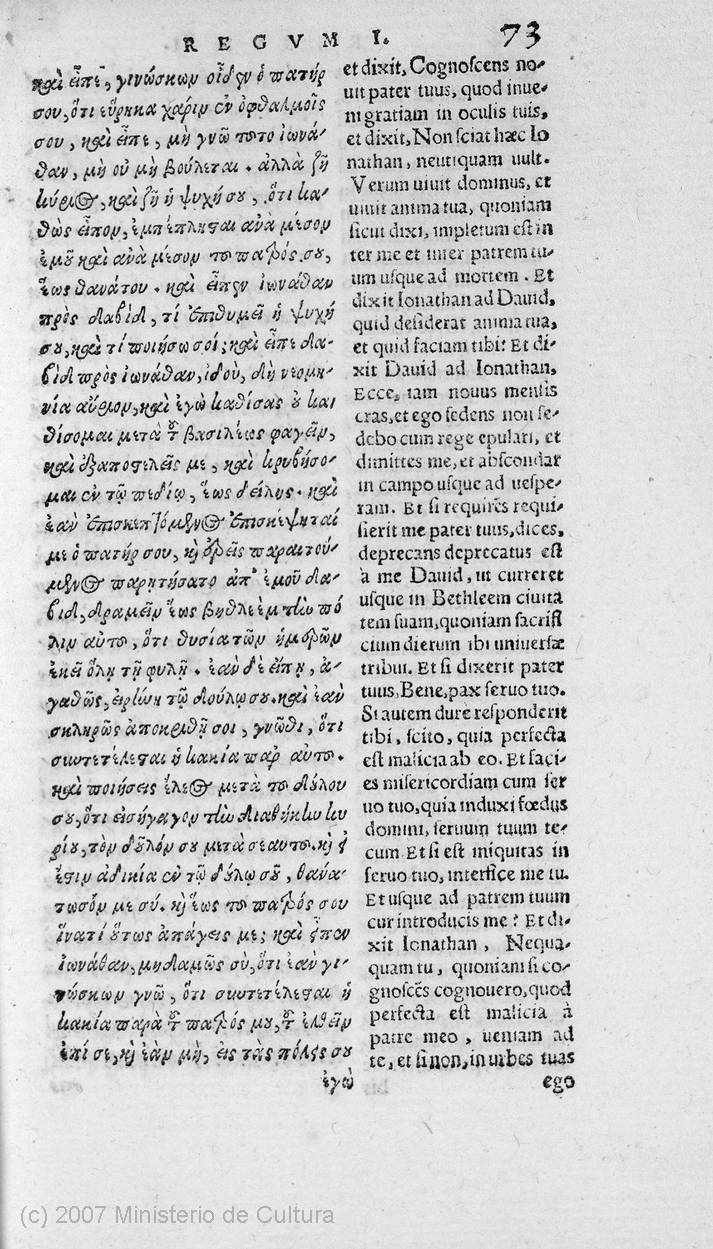 REGVM I. 73
καὶ εἶπε, γινώσκων οἶδεν ὁ πατήρ
σου, ὅτι εὕρηκα χάριν ἐν ὀφθαλμοῖς
σου, καὶ εἶπε, μὴ γνῶ τοῦτο ἰωνά-
θαν, μὴ οὐ μὴ βούλεται. ἀλλὰ ζῇ
κύριος, καὶ ζῇ ἡ ψυχή σου, ὅτι κα-
θὼς εἶπον, ἐμπέπλησαι ἀνὰ μέσον
ἐμοῦ καὶ ἀνὰ μέσον τοῦ πατρός σου,
ἕως θανάτου. καὶ εἶπεν ἰωνάθαν
πρὸς δαβὶδ, τί ἐπιθυμεῖ ἡ ψυχή
σου, καὶ τί ποιήσω σοι; καὶ εἶπε δα-
βὶδ πρὸς ἰωνάθαν, ἰδοὺ, δὴ νεομη-
νία αὔριον, καὶ ἐγὼ καθίσας οὐ κα
θίσομαι μετὰ τοῦ βασιλέως φαγεῖν,
καὶ ἐξαποστελεῖς με, καὶ κρυβήσο-
μαι ἐν τῷ πεδίῳ, ἕως δείλης. καὶ
ἐὰν ἐπισκεπτόμενος ἐπισκέψηταί
με ὁ πατήρ σου, καὶ ἐρεῖς παραιτού-
μενος παρῃτήσατο ἀπ' ἐμοῦ δα-
βὶδ, δραμεῖν ἕως βηθλεὲμ τὴν πό
λιν αὐτοῦ, ὅτι θυσία τῶν ἡμερῶν
ἐκεῖ ὅλῃ τῇ φυλῇ. ἐὰν δὲ εἴπῃ, ἀ-
γαθῶς, εἰρήνη τῷ δούλῳ σου. καὶ ἐὰν
σκληρῶς ἀποκριθῇ σοι, γνῶθι, ὅτι
συντετέλεσται ἡ κακία παρ' αὐτοῦ.
καὶ ποιήσεις ἔλεος μετὰ τοῦ δούλου
σου, ὅτι εἰσήγαγον τὴν διαθήκην κυ
ρίου, τὸν δοῦλόν σου μετὰ σεαυτοῦ. καὶ εἰ
ἔστιν ἀδικία ἐν τῷ δούλῳ σοῦ, θανά-
τωσόν με σύ. καὶ ἕως τοῦ πατρός σου
ἵνατί οὕτως ἀπάγεις με; καὶ εἶπεν
ἰωνάθαν, μηδαμῶς σὺ, ὅτι ἐὰν γι-
νώσκων γνῶ, ὅτι συντετέλεσται ἡ
κακία παρὰ τοῦ πατρός μου, τοῦ ἐλθεῖν
ἐπί σε, καὶ ἐὰν μὴ, εἰς τὰς πόλεις σου
ἐγὼ
et dixit, Cognoscens no-
uit pater tuus, quod inue-
ni gratiam in oculis tuis,
et dixit, Non sciat hæc Io
nathan, neutiquam uult.
Verum uiuit dominus, et
uiuit anima tua, quoniam
sicut dixi, impletum est in
ter me et inter patrem tu-
um usque ad mortem. Et
dixit Ionathan ad Dauid,
quid desiderat anima tua,
et quid faciam tibi? Et di-
xit Dauid ad Ionathan,
Ecce, iam nouus mensis
cras, et ego sedens non se-
debo cum rege epulari, et
dimittes me, et abscondar
in campo usque ad uespe-
ram. Et si requirēs requi-
sierit me pater tuus, dices,
deprecans deprecatus est
à me Dauid, ut curreret
usque in Bethleem ciuita
tem suam, quoniam sacrifi
cium dierum ibi uniuersæ
tribui. Et si dixerit pater
tuus, Bene, pax seruo tuo.
Si autem durè responderit
tibi, scito, quia perfecta
est malicia ab eo. Et faci-
es misericordiam cum ser
uo tuo, quia induxi fœdus
domini, seruum tuum te-
cum Et si est iniquitas in
seruo tuo, interfice me tu.
Et usque ad patrem tuum
cur introducis me? Et di-
xit Ionathan, Nequa-
quam tu, quoniam si co-
gnoscēs cognouero, quod
perfecta est malicia à
patre meo, ueniam ad
te, et si non, in urbes tuas
ego
(c) 2007 Ministerio de Cultura